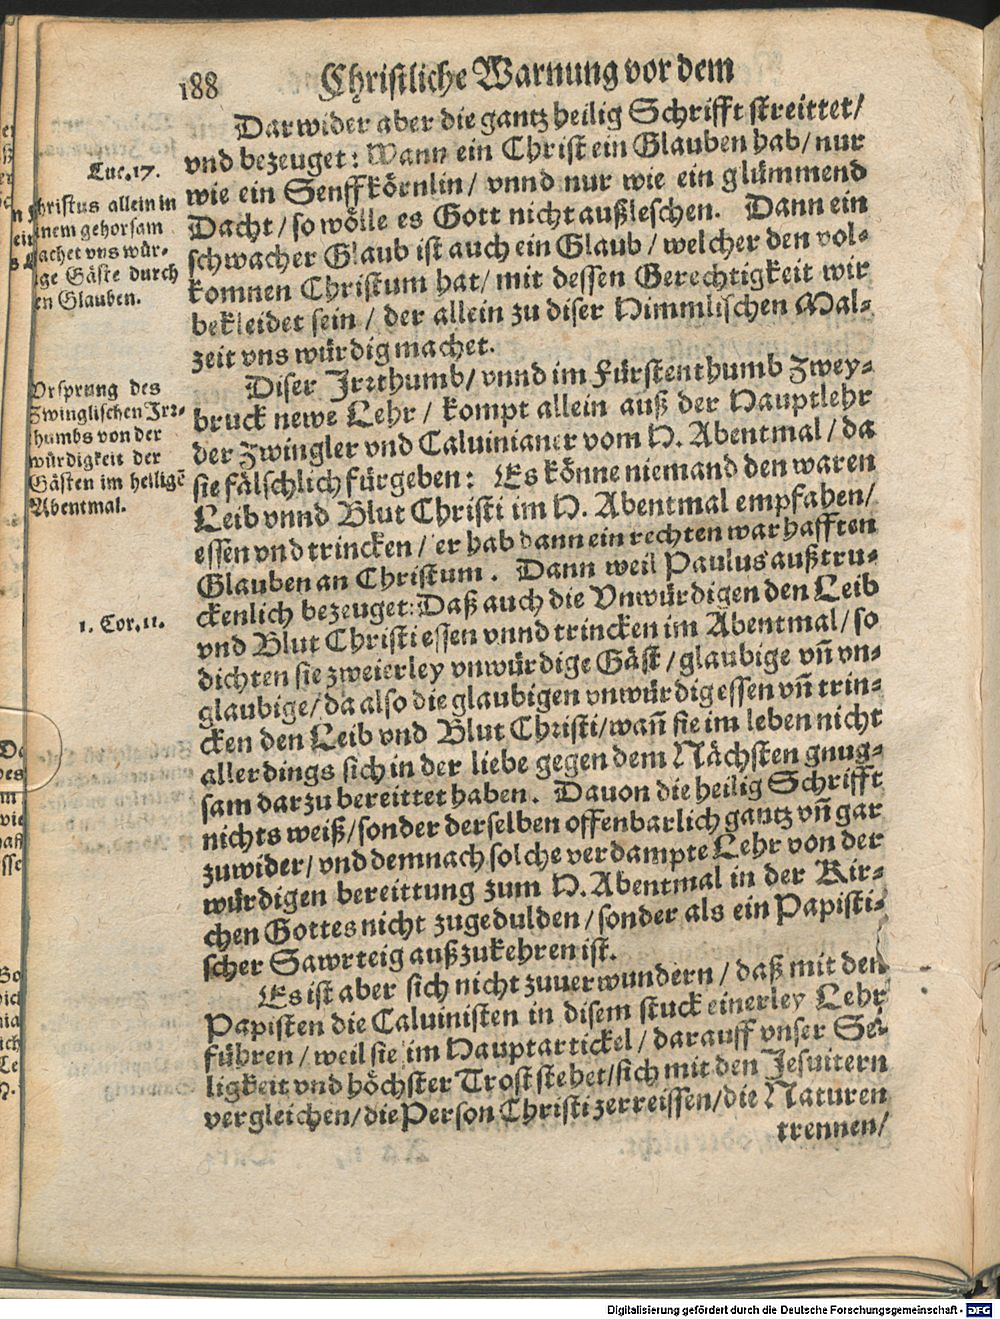 188 Christliche Warnung vor dem
Darwider aber die gantz heilig Schrifft streittet/
vnd bezeuget: Wann ein Christ ein Glauben hab/ nur
wie ein Senffkörnlin/ vnnd nur wie ein glümmend
Dacht/ so wölle es Gott nicht außleschen. Dann ein
schwacher Glaub ist auch ein Glaub/ welcher den vol-
komnen Christum hat/ mit dessen Gerechtigkeit wir
bekleidet sein/ der allein zu diser Himmlischen Mal-
zeit vns würdig machet.
Luc. 17.
Christus allein in
seinem gehorsam
machet vns wür-
dige Gäste durch
den Glauben.
Diser Irrthumb/ vnnd im Fürstenthumb Zwey-
bruck newe Lehr/ kompt allein auß der Hauptlehr
der Zwingler vnd Caluinianer vom H. Abentmal/ da
sie fälschlich fürgeben: Es könne niemand den waren
Leib vnnd Blut Christi im H. Abentmal empfahen/
essen vnd trincken/ er hab dann ein rechten warhafften
Glauben an Christum. Dann weil Paulus außtru-
ckenlich bezeuget: Daß auch die Vnwürdigen den Leib
vnd Blut Christi essen vnnd trincken im Abentmal/ so
dichten sie zweierley vnwürdige Gäst/ glaubige vñ vn-
glaubige/ da also die glaubigen vnwürdig essen vñ trin-
cken den Leib vnd Blut Christi/ wañ sie im leben nicht
allerdings sich in der liebe gegen dem Nächsten gnug-
sam darzu bereittet haben. Dauon die heilig Schrifft
nichts weiß/ sonder derselben offenbarlich gantz vñ gar
zuwider/ vnd demnach solche verdampte Lehr von der
würdigen bereittung zum H. Abentmal in der Kir-
chen Gottes nicht zugedulden/ sonder als ein Papisti-
scher Sawrteig außzukehren ist.
Vrsprung des
Zwinglischen Irr-
thumbs von der
würdigkeit der
Gästen im heiligẽ
Abentmal.
1. Cor. 11.
Es ist aber sich nicht zuuerwundern/ daß mit den
Papisten die Caluinisten in disem stuck einerley Lehr
führen/ weil sie im Hauptartickel/ darauff vnser Se-
ligkeit vnd höchster Trost stehet/ sich mit den Jesuitern
vergleichen/ die Person Christi zerreissen/ die Naturen
trennen/
Digitalisierung gefördert durch die Deutsche Forschungsgemeinschaft - DFG